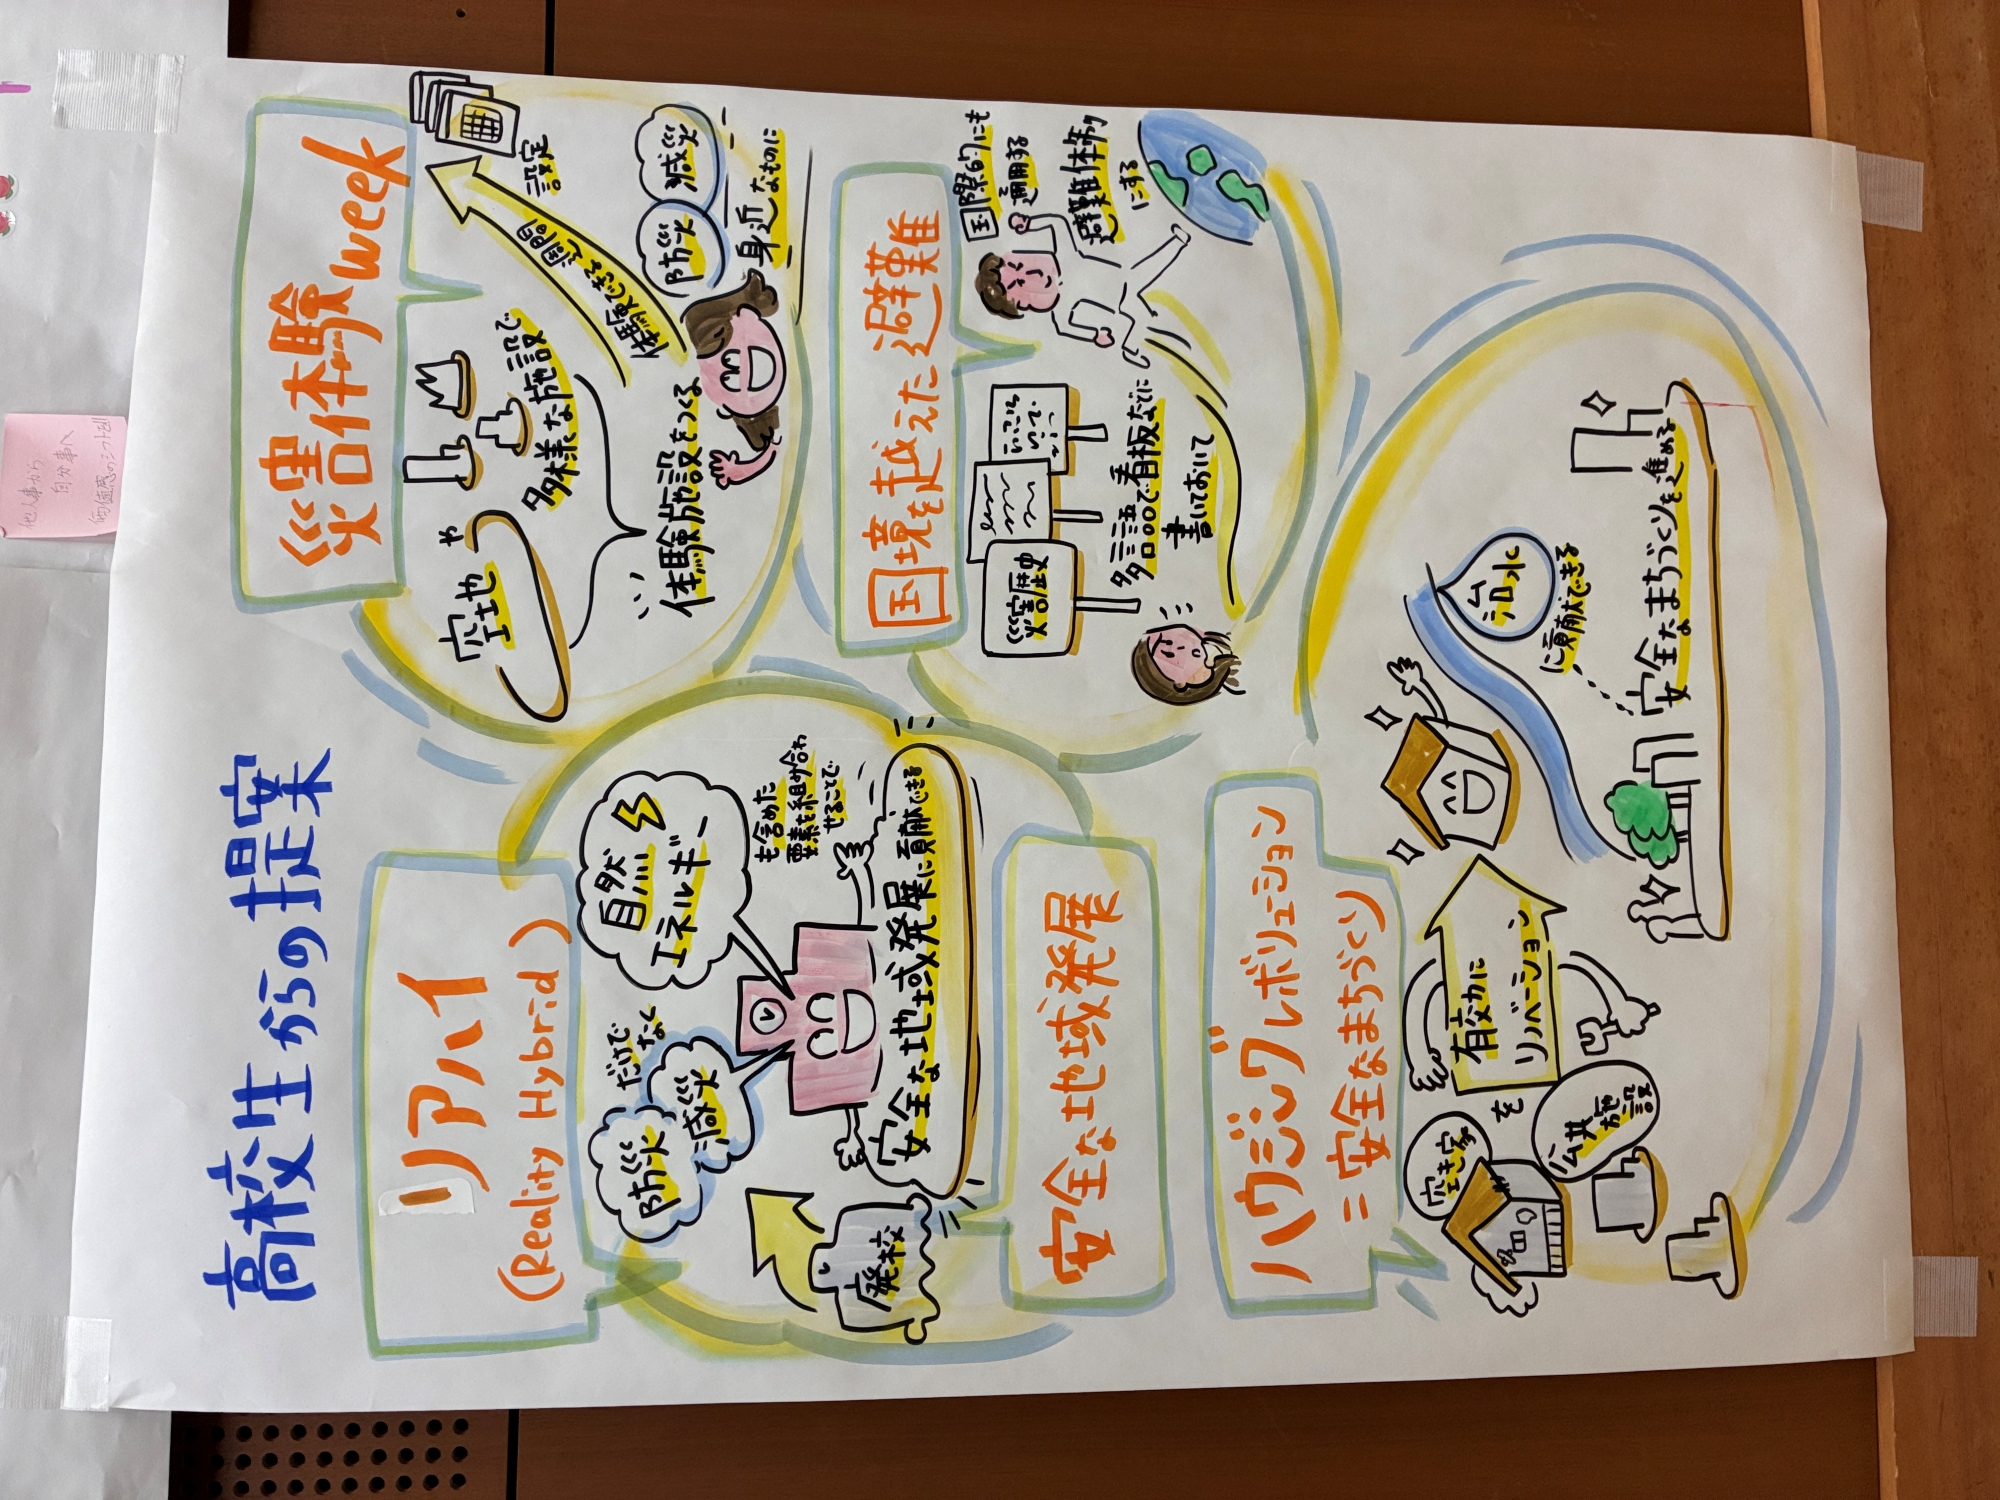 高校生からの提案
リアハイ
(Reality Hybrid)
防災
減災
だけで
なく
自然
エネルギー
も含めた
要素を組み合わ
せることで
廃校
安全な地域発展に貢献できる
安全な地域発展
災害体験
week
空地
や
多様な施設で
体験施設をつくる
体験できる週間
設定
防災
減災
身近なものに
国境を越えた避難
災害歴史
多言語で看板などに
書いておいて
国際的にも
通用する
避難体制
にする
ハウジングレボリューション
=安全なまちづくり
空き家
公共
施設
を
有効に
リノベーション
治水
に貢献できる
安全なまちづくりを進める
他人事から
自分事へ
価値感のシフトを!